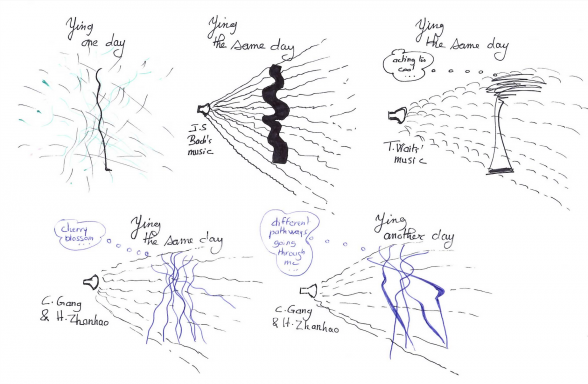 Ying
one day
Ying
the same day
J.S
Bach's
music
Ying
the same day
acting too
cool
T. Waits'
music
Ying
the same day
cherry
blossom
C. Gang
& H. Zhanhao
Ying
another day
different
pathways
going
through
me
C. Gang
& H. Zhanhao